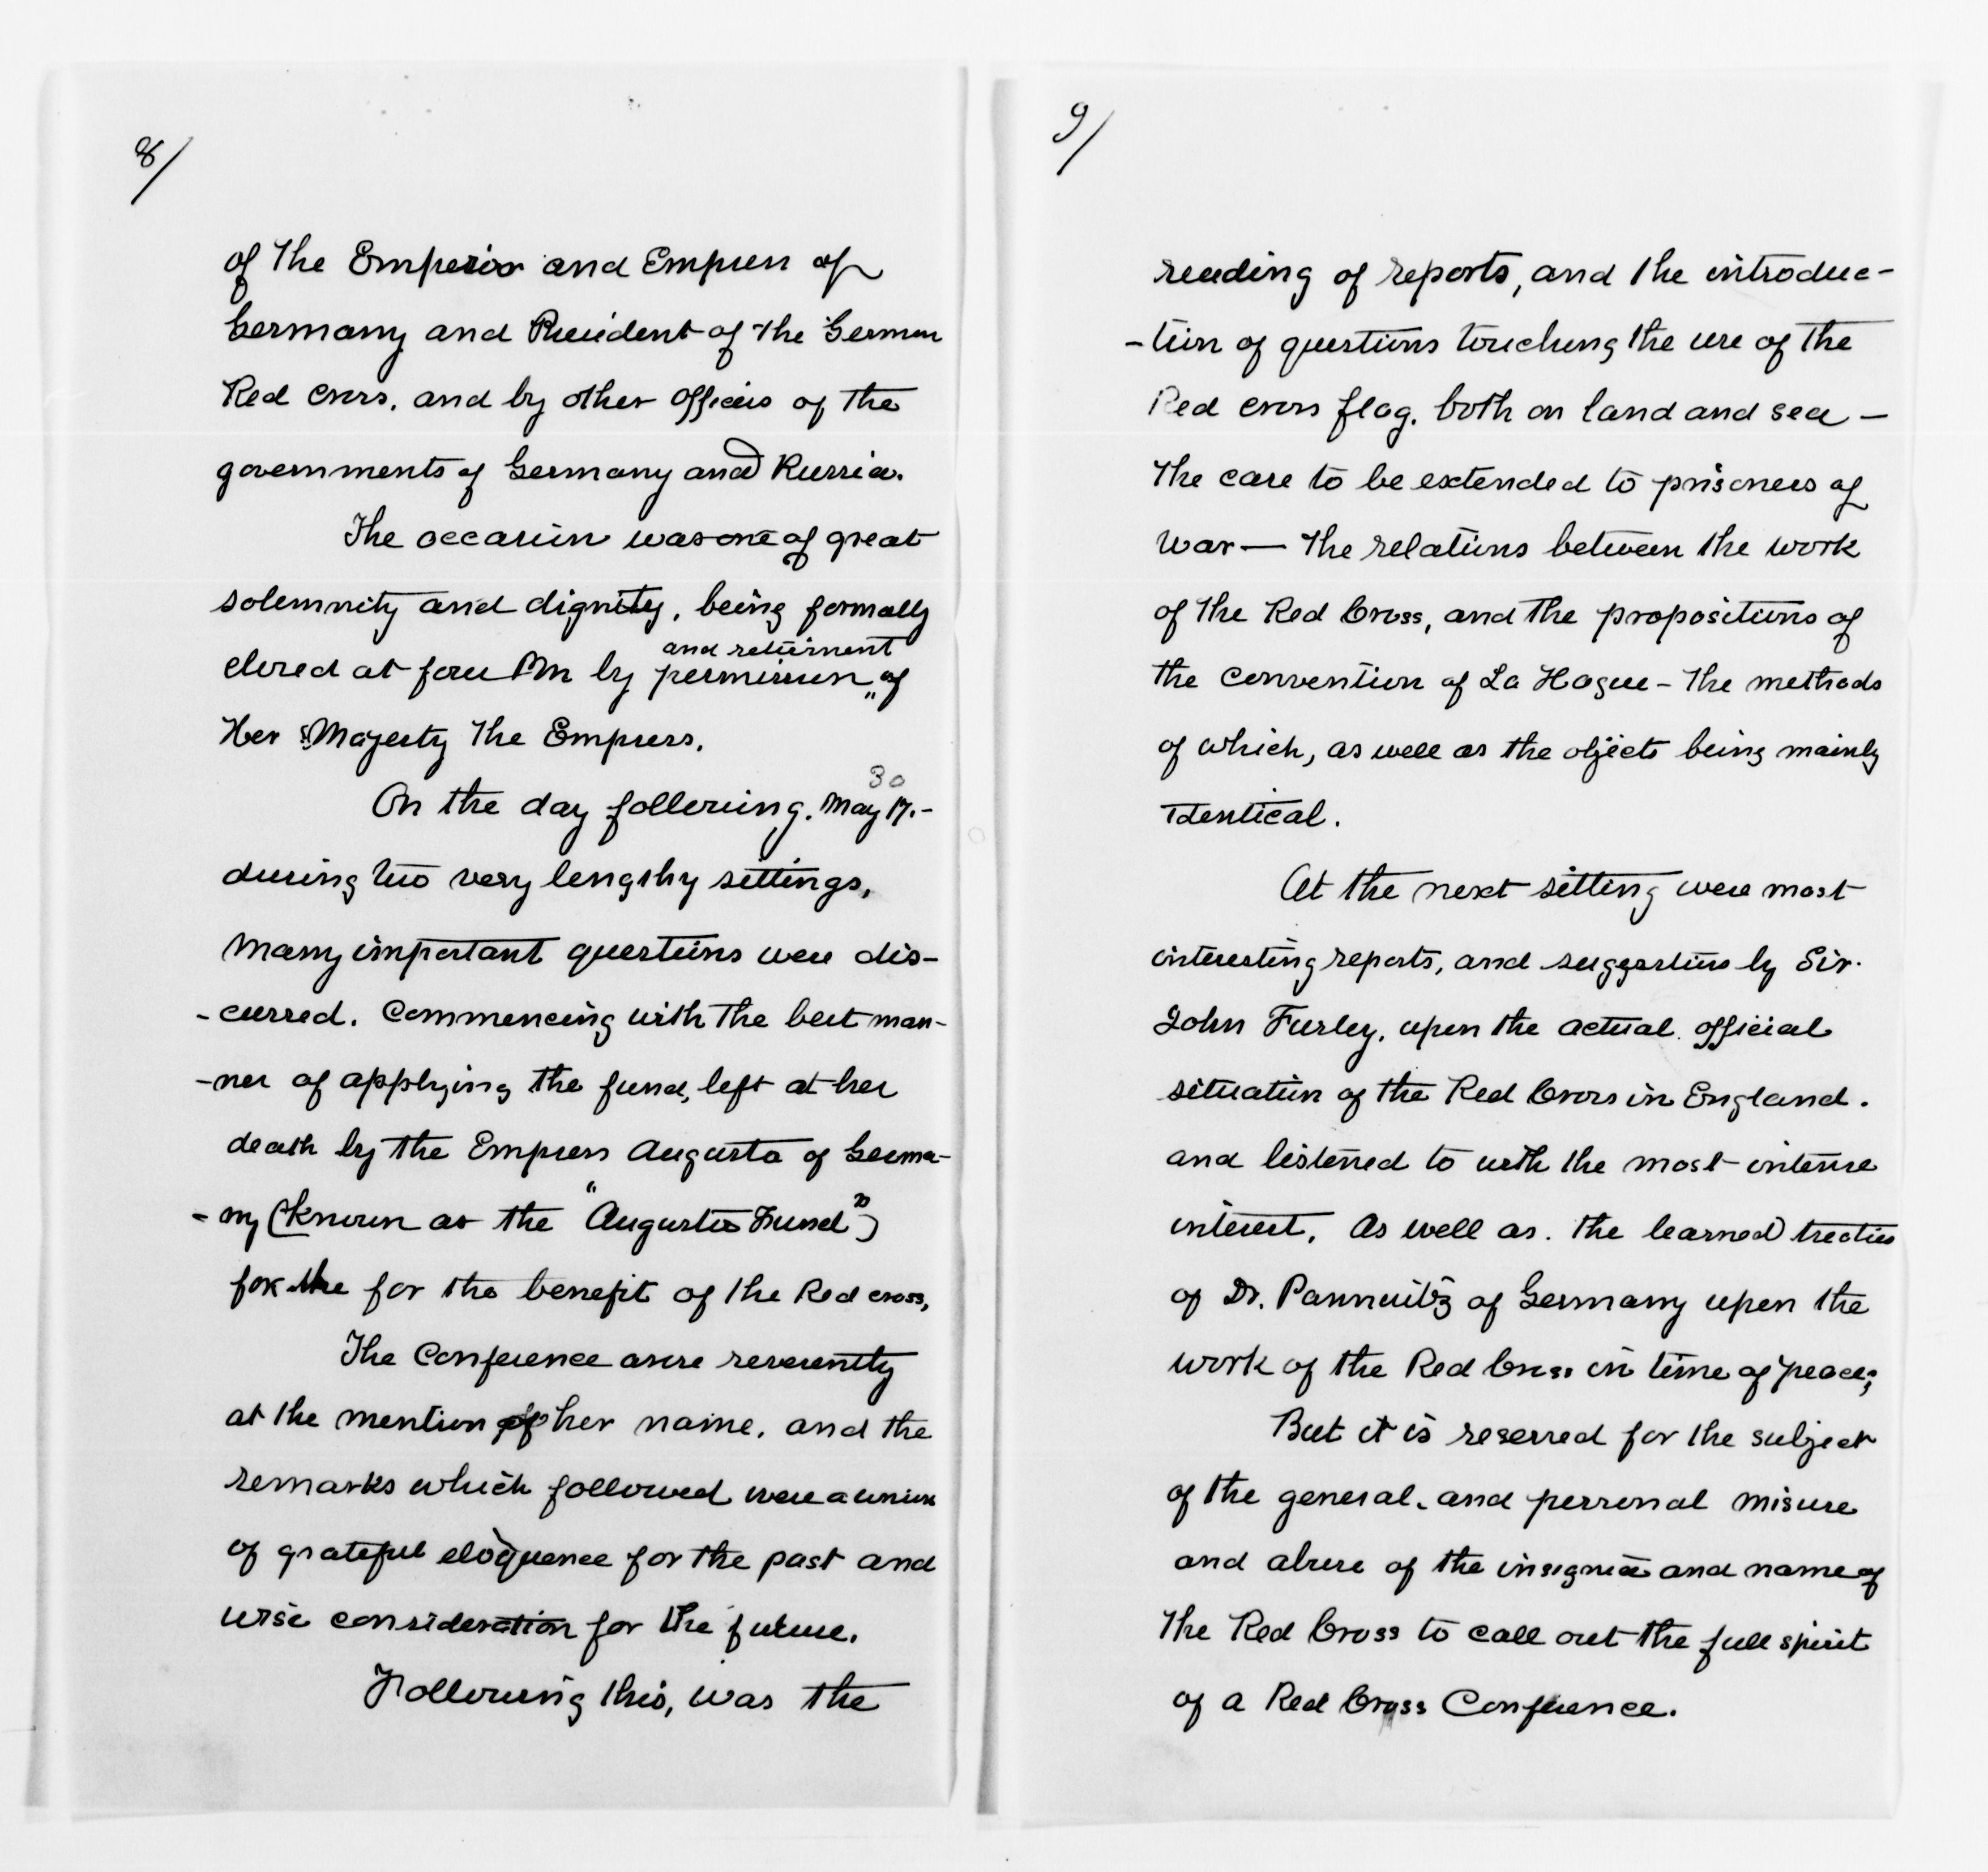 8/
of the Emperior and Empress of
Germany and President of the German
Red Cross, and by other officers of the
governments of Germany and Russia.
The occasion was one of great
solemnity and dignity, being formally
and retirement
closed at four PM by permission " of
Her Majesty the Empress.
30
On the day following. May 17.-
during two very lengthy sittings,
many important questions were dis-
-cussed. Commencing with the best man-
-ner of applying the fund, left at her
death by the Empress Augusta of Germa-
-ny (known as the "Augusta Fund")
for the for the benefit of the Red cross,
The Conference arose reverently
at the mention of her name, and the
remarks which followed were a union
of grateful eloquence for the past and
wise consideration for the future.
Following this, was the
9/
reading of reports, and the introduc-
-tion of questions touching the use of the
Red cross flag. both on land and sea —
the care to be extended to prisoners of
war — the relations between the work
of the Red Cross, and the propositions of
the Convention of La Hague - the methods
of which, as well as the objects being mainly
identical.
At the next sitting were most
interesting reports, and suggestions by Sir.
John Furley, upon the actual official
situation of the Red Cross in England.
and listened to with the most intense
interest, as well as. the learned treaties
of Dr. Pannwitz of Germany upon the
work of the Red Cross in time of peace;
But it is reserved for the subject
of the general. and personal misuse
and abuse of the insignia and name of
the Red Cross to call out the full spirit
of a Red Cross Conference.